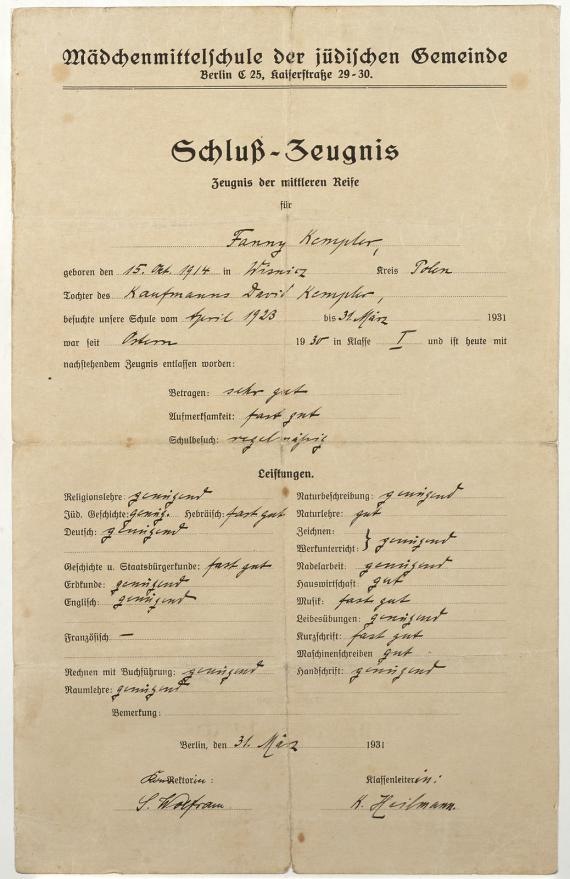 Mädchenmittelschule der jüdischen Gemeinde
Berlin C 25, Kaiserstraße 29-30.
Schluß-Zeugnis
Zeugnis der mittleren Reife
für
Fanny Kempler,
geboren den 15. Okt. 1914 in Wisnicz Kreis Polen
Tochter des Kaufmanns David Kempler,
besuchte unsere Schule vom April 1923 bis 31. März 1931
war seit Ostern 1930 in Klasse I und ist heute mit
nachstehendem Zeugnis entlassen worden:
Betragen: sehr gut
Aufmerksamkeit: fast gut
Schulbesuch: regelmäßig
Leistungen.
Religionslehre: genügend Naturbeschreibung: genügend
Jüd. Geschichte: genüg. Hebräisch: fast gut Naturlehre: gut
Deutsch: genügend Zeichnen:
Werkunterricht: } genügend
Geschichte u. Staatsbürgerkunde: fast gut Nadelarbeit: genügend
Erdkunde: genügend Hauswirtschaft: gut
Englisch: genügend Musik: fast gut
Leibesübungen: genügend
Französisch: — Kurzschrift: fast gut
Maschinenschreiben gut
Rechnen mit Buchführung: genügend Handschrift: genügend
Raumlehre: genügend
Bemerkung:
Berlin, den 31. März 1931
Rektorin: Klassenleiterin:
S. Wolfram K. Heilmann.